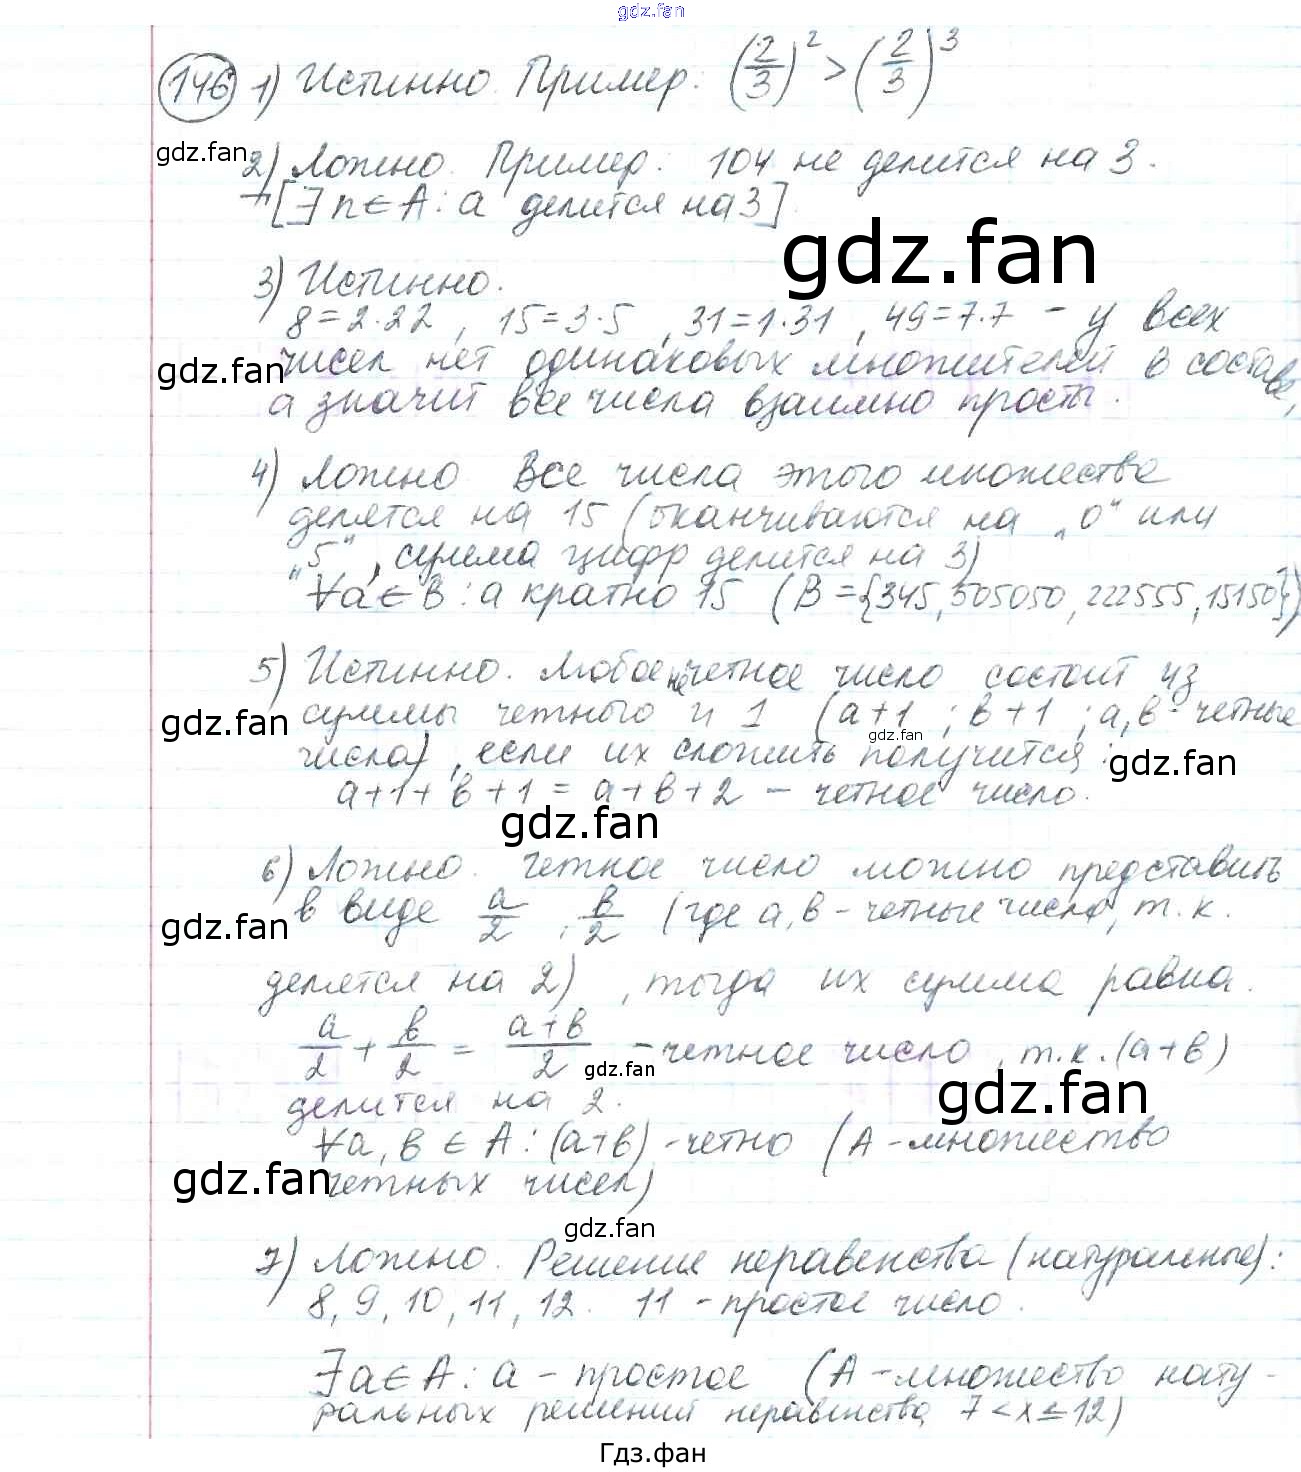 gdz.fan
146 1) Истинно. Пример: (2/3)² > (2/3)³
gdz.fan
2) Ложно. Пример: 104 не делится на 3.
[∃ n ∈ A: a делится на 3].
gdz.fan
3) Истинно.
8=2·22, 15=3·5, 31=1·31, 49=7·7 – у всех
gdz.fan
чисел нет одинаковых множителей в составе,
а значит все числа взаимно просты.
4) Ложно. Все числа этого множества
делятся на 15 (оканчиваются на „0“ или
„5“, сумма цифр делится на 3)
∀a ∈ B: a кратно 15 (B={345, 505050, 222555, 15150})
5) Истинно. Любое нечетное число состоит из
gdz.fan
суммы четного и 1 (a+1; b+1; a,b-четные
gdz.fan
числа), если их сложить получится:
gdz.fan
a+1+b+1=a+b+2 – четное число.
gdz.fan
6) Ложно. Четное число можно представить
в виде a/2, b/2 (где a,b – четные числа, т.к.
gdz.fan
делятся на 2), тогда их сумма равна.
a/2 + b/2 = (a+b)/2 – четное число, т.к. (a+b)
gdz.fan
делится на 2.
gdz.fan
∀a, b ∈ A: (a+b) -четно (A – множество
четных чисел)
gdz.fan
gdz.fan
7) Ложно. Решение неравенства (натуральные):
8, 9, 10, 11, 12. 11 – простое число.
∃a∈A: a – простое (A – множество нату-
ральных решений неравинства 7<x≤12)
Гдз.фан